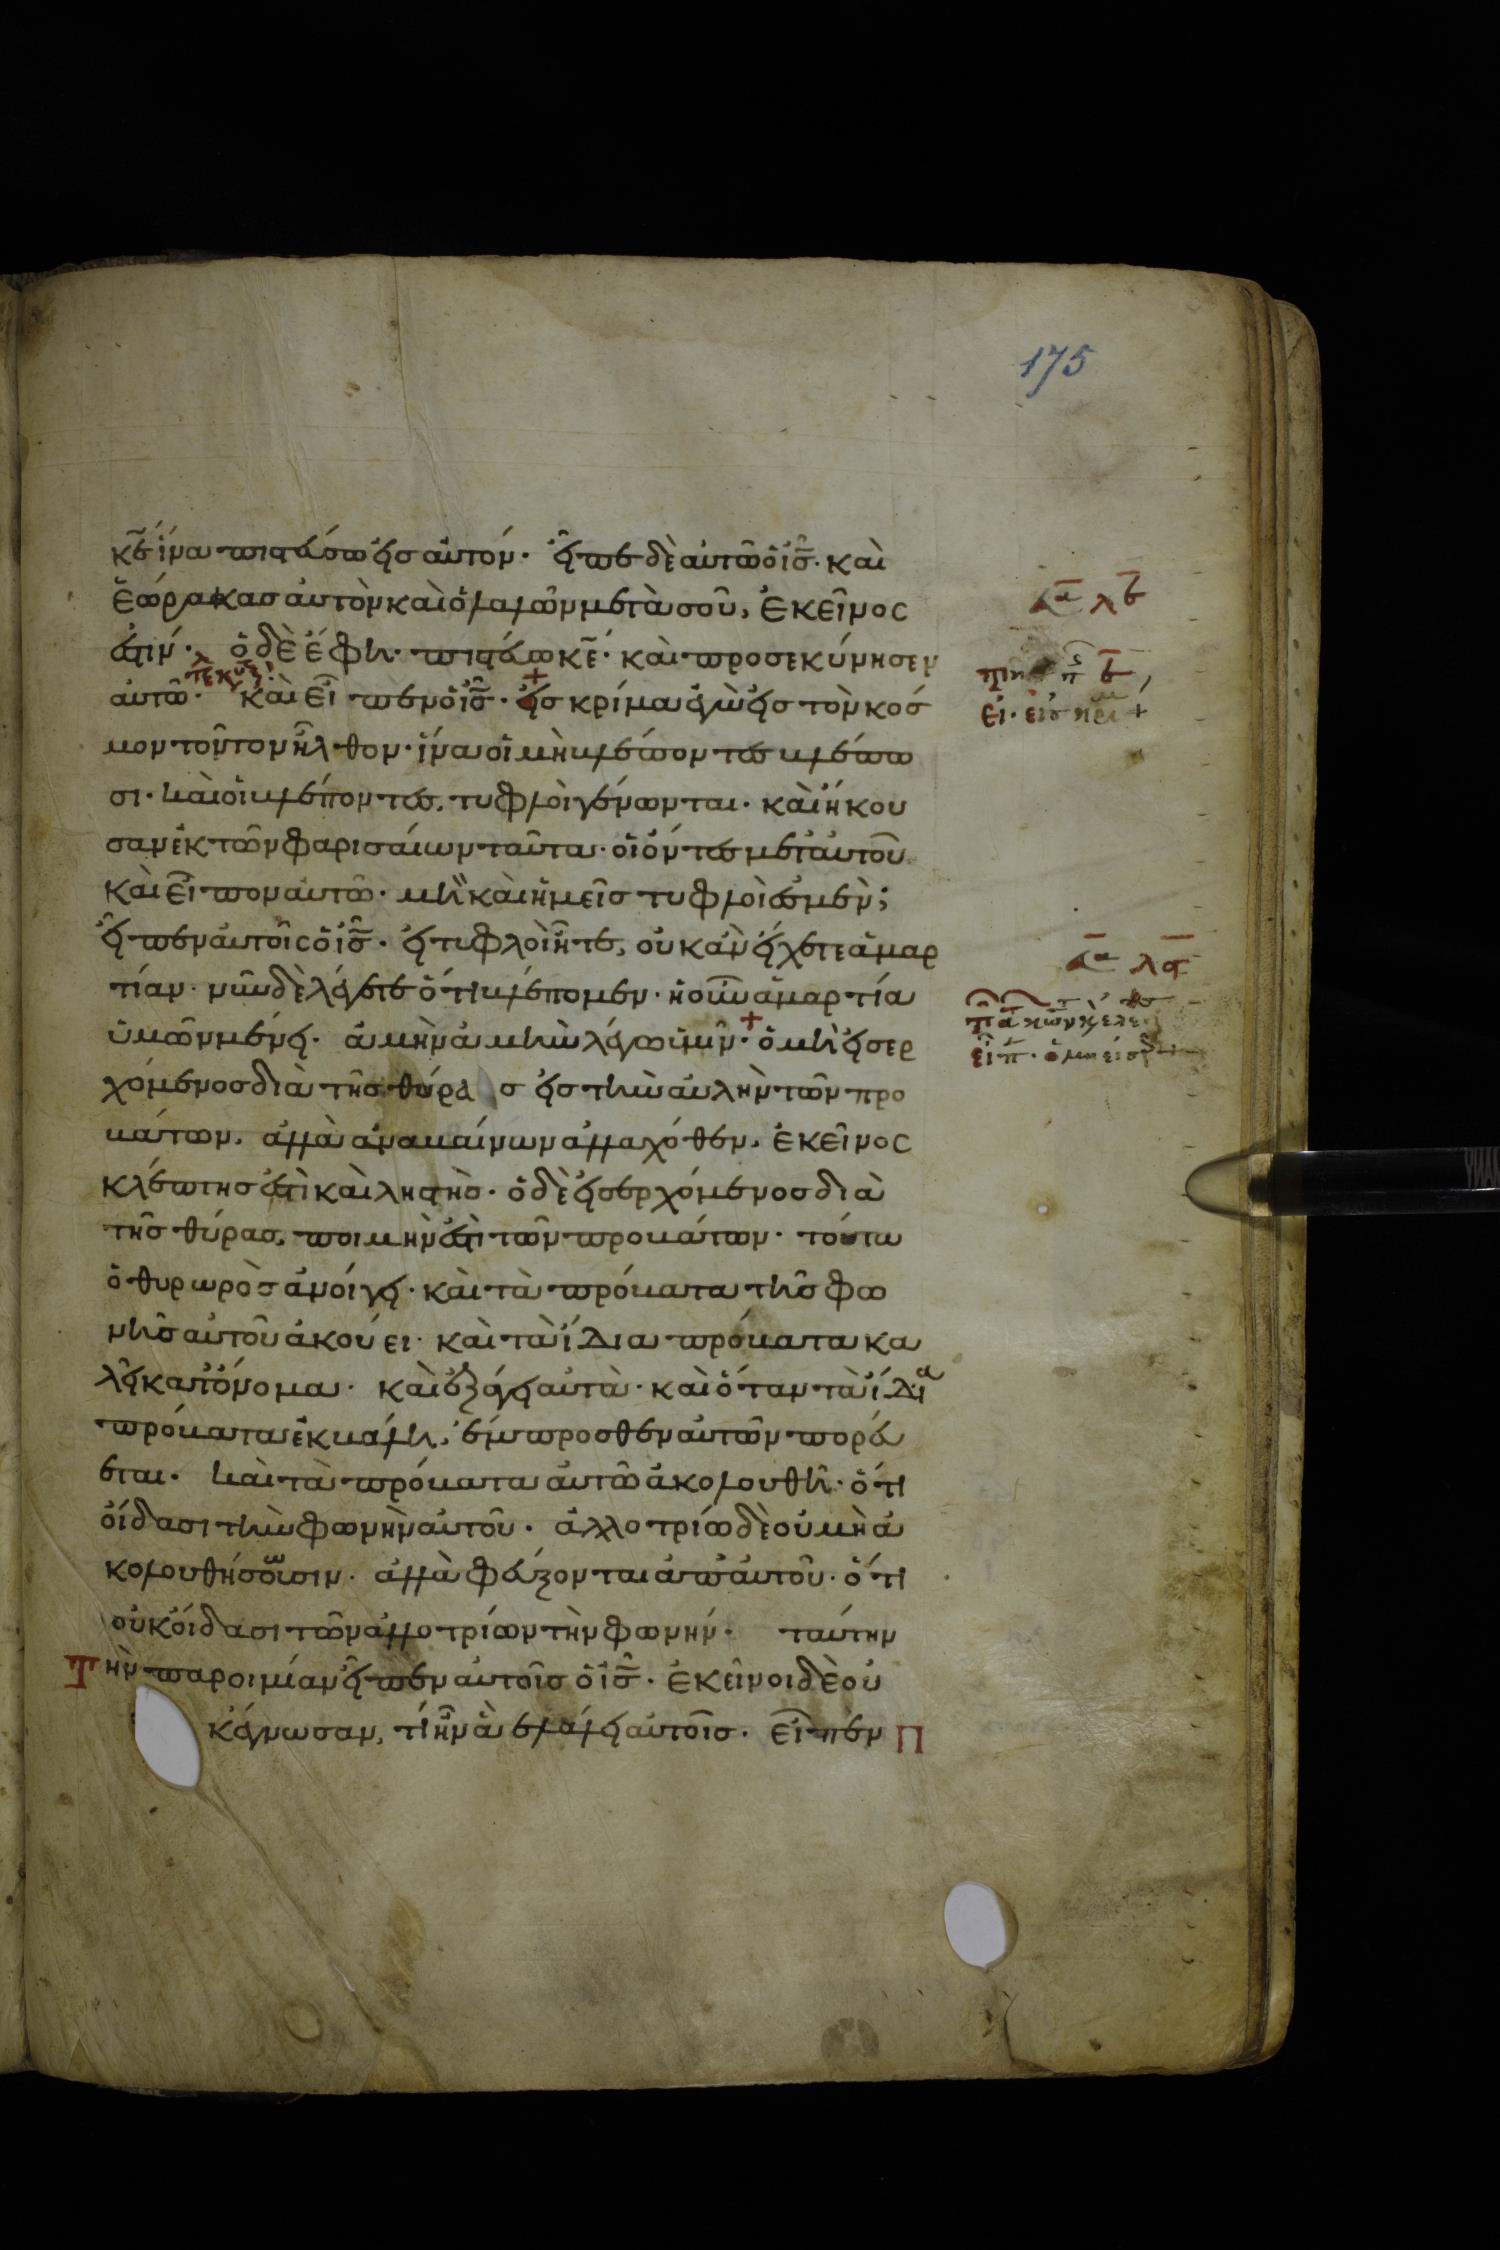 175
κ̅ε̅ ἵνα πιστεύσω εἰς αὐτόν· εἶπε δὲ αὐτῶ ὁ ι̅ς̅· καὶ
ἑώρακας αὐτὸν καὶ ὁ λαλῶν μετὰ σοῦ, ἐκεῖνος
ἐστίν· ὁ δὲ ἔφη· πιστεύω κ̅ε̅· καὶ προσεκύνησεν
αὐτῶ· καὶ εἶπεν ὁ ι̅ς̅· εἰς κρίμα ἐγὼ εἰς τὸν κόσ
μον τοῦτον ἦλθον· ἵνα οἱ μὴ βλέποντες βλέπω
σι· καὶ οἱ βλέποντες, τυφλοὶ γένωνται· καὶ ἤκου
σαν ἐκ τῶν φαρισαίων ταῦτα· οἱ ὄντες μετ' αὐτοῦ
καὶ εἶπον αὐτῶ· μὴ καὶ ἡμεῖς τυφλοὶ ἐσμεν;
εἶπεν αὐτοῖς ὁ ι̅ς̅· εἰ τυφλοὶ ἦτε, οὐκ ἂν εἴχετε ἁμαρ
τίαν· νῦν δὲ λέγετε ὅτι βλέπομεν· ἡ οὖν ἁμαρτία
ὑμῶν μένει· ἀμὴν ἀμὴν λέγω ὑμῖν· ὁ μὴ εἰσερ
χόμενος διὰ τῆς θύρας εἰς τὴν αὐλὴν τῶν προ
βάτων, ἀλλὰ ἀναβαίνων ἀλλαχόθεν, ἐκεῖνος
κλέπτης ἐστὶ καὶ ληστής· ὁ δὲ εἰσερχόμενος διὰ
τῆς θύρας, ποιμὴν ἐστὶ τῶν προβάτων· τούτω
ὁ θυρωρὸς ἀνοίγει· καὶ τὰ πρόβατα τῆς φω
νῆς αὐτοῦ ἀκούει· καὶ τὰ ἴδια πρόβατα κα
λεῖ κατ' ὄνομα· καὶ ἐξάγει αὐτὰ· καὶ ὅταν τὰ ἴδια
πρόβατα ἐκβάλη, ἔμπροσθεν αὐτῶν πορεύ
εται· καὶ τὰ πρόβατα αὐτῶ ἀκολουθῆ· ὅτι
οἴδασι τὴν φωνὴν αὐτοῦ· ἀλλοτρίω δὲ οὐ μὴ ἀ
κολουθήσουσιν· ἀλλὰ φεύξονται ἀπ' αὐτοῦ· ὅτι
οὐκ οἴδασι τῶν ἀλλοτρίων τὴν φωνήν· ταύτην
τὴν παροιμίαν εἶπεν αὐτοῖς ὁ ι̅ς̅· ἐκεῖνοι δὲ οὐ
κ ἔγνωσαν, τί ἦν ἃ ἐλάλει αὐτοῖς· εἶπεν Π